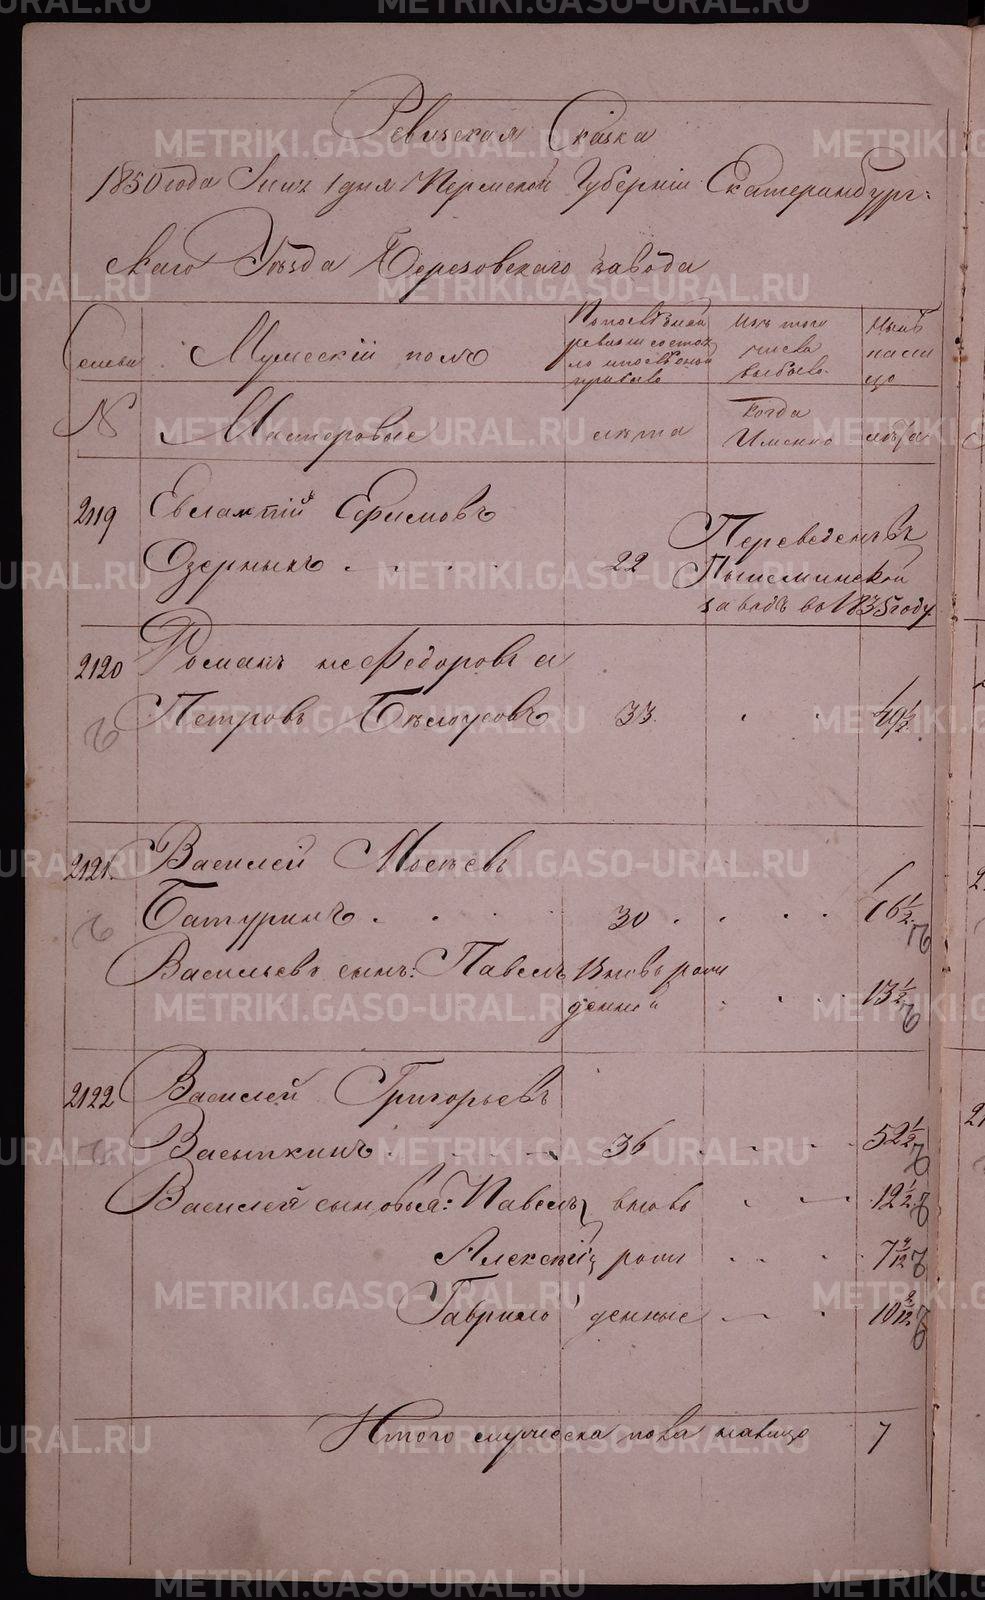 Ревизская Сказка
1850 года Июня 1 дня Пермской Губернии Екатеринбург-
скаго Уезда Березовскаго завода
Семьи
Мужескій полъ
По последней ревизіи состояло и после оной прибыло
Изъ того числа выбыло
Ныне налицо
№
Мастеровые
лета
Когда Именно
лета
2119
Евлампій Ефимовъ
Озерныхъ . . . . . 22
Переведенъ въ
Пышминской
заводъ въ 1835 году
2120
Романъ Федоровъ
Петровъ Белоусовъ 33 . . 49 1/2
2121.
Василей Мосеевъ
Батуринъ . . . . 30 . . . . 46 1/2
Васильевъ сынъ: Павелъ вновь рож
денной . . . 13 1/2
2122
Василей Григорьевъ
Васыпкинъ . . . . 36 . . . 52 1/2
Василея сыновья: Павелъ вновь . . 12 1/2
Алексей рож . . . 7 4/12
Гаврило денные . . . 10/12
Итого мужеска пола налицо 7
METRIKI.GASO-URAL.RU